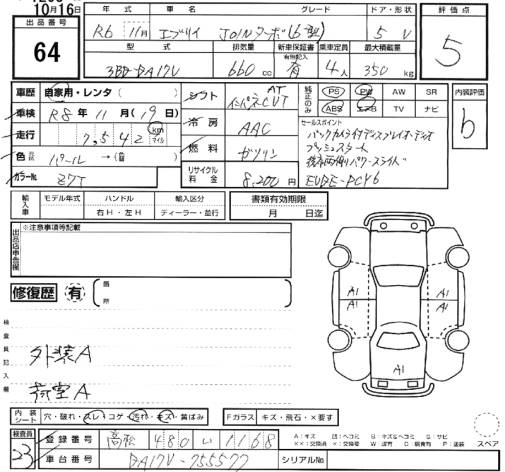 10月16日
出品番号
64
年式 車名 グレード ドア・形状
R6 11月 エブリイ JOINターボ(6型) 5 V
型式 排気量 新車保証書 乗車定員 最大積載量
有無記入
3BD-DA17V 660cc 有 4人 350kg
評価点
5
車歴 自家用・レンタ( )
車検 R8年11月(19日)
走行 7,542 km マイル
色 パール →( )
カラーNo. Z7T
シフト AT
インパネCVT
冷房 AAC
燃料 ガソリン
リサイクル料金 8,200円
純正のみ
PS PW AW SR
ABS エアB TV ナビ
セールスポイント
バックカメラ付ディスプレイオーディオ
プッシュスタート
後席両側パワースライド
内装評価
b
輸入車 モデル年式 ハンドル 輸入区分
年 右H・左H ディーラー・並行
書類有効期限
月 日迄
※注意事項等記載
修復歴 有 箇所
検査員記入欄
外装A
荷室A
A1 A1
A1 A1
A1
内装シート 穴・破れ・スレ・コゲ・汚れ・キズ・黄ばみ
Fガラス キズ・飛石・×要す
検査員
23
登録番号 高松 480 い 1168
車台番号 DA17V-755577
シリアルNo.
スペア